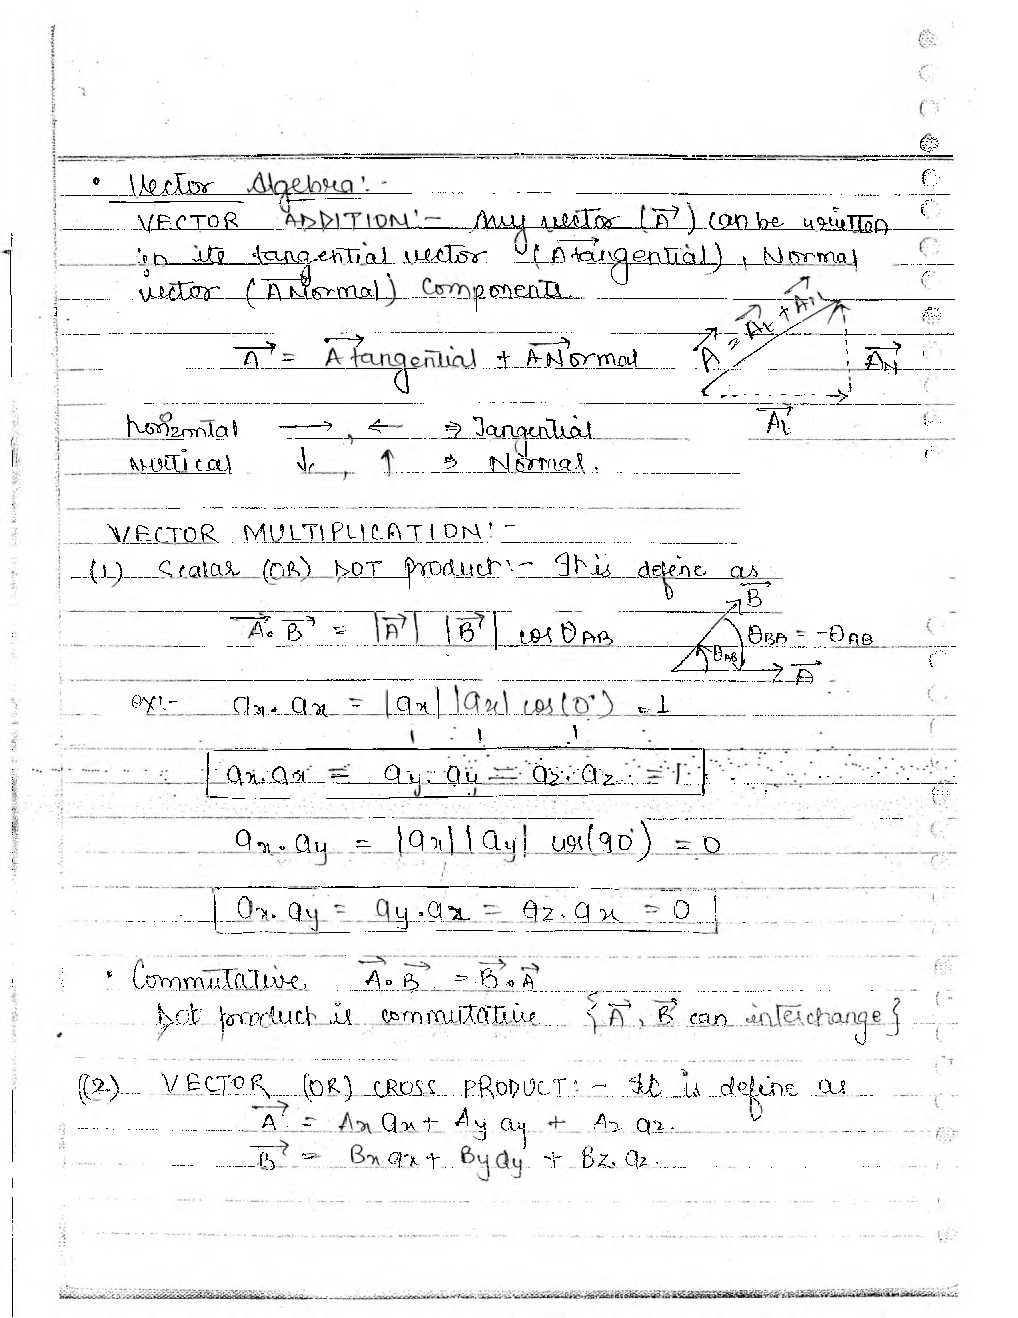 • Vector Algebra:-
VECTOR ADDITION:- Any vector (A⃗) can be written
in its tangential vector (A⃗tangential), Normal
vector (A⃗Normal) components
A⃗ = A⃗t + A⃗n
A⃗ = A⃗tangential + A⃗Normal
A⃗N
A⃗t
horizontal → , ← ⇒ Tangential
vertical ↓ , ↑ ⇒ Normal.
VECTOR MULTIPLICATION:-
(1) Scalar (OR) DOT product:- This define as
B⃗
A⃗. B⃗ = |A⃗| |B⃗| cos θAB
θBA = -θAB
θAB
A⃗
ex:- ax. ax = |ax| |ax| cos(0°) = 1
1 1 1
ax.ax = ay.ay = az.az = 1
ax.ay = |ax||ay| cos(90°) = 0
ax.ay = ay.az = az.ax = 0
• Commutative. A⃗.B⃗ = B⃗.A⃗
Dot product is commutative {A⃗, B⃗ can interchange}
(2) VECTOR (OR) CROSS PRODUCT:- It is define as
A⃗ = Ax ax + Ay ay + Az az.
B⃗ = Bx ax + By ay + Bz. az.